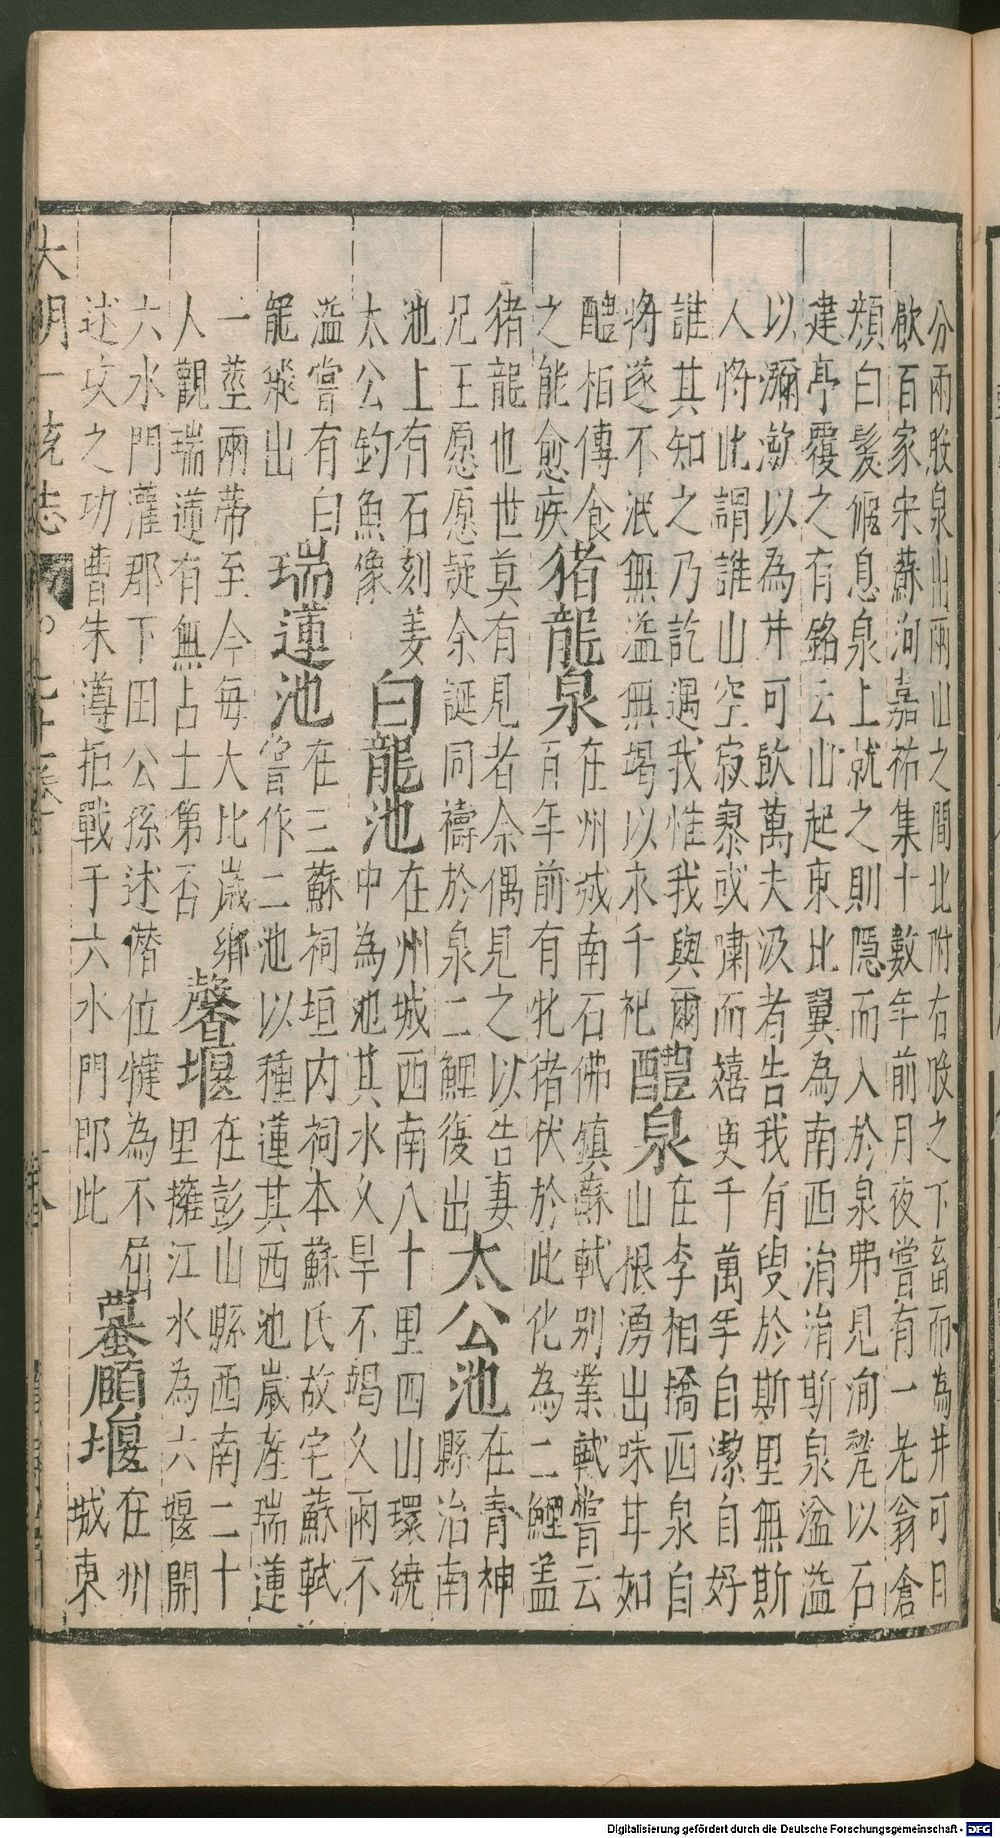 分兩股泉出兩山之間北附右股之下畜而為井可日
飲百家宋蘇洵嘉祐集十數年前月夜嘗有一老翁倉
顏白髮偃息泉上就之則隱而入於泉弗見洵甃以石
建亭覆之有銘云山起東北翼為南西涓涓斯泉湓溢
以瀰漱以為井可飲萬夫汲者告我有叟於斯里無斯
人將此謂誰山空寂寥或嘯而嬉更千萬年自潔自好
誰其知之乃訖遇我惟我與爾
將遂不泯無溢無竭以永千祀
醴泉
在李相橋西泉自
山根湧出味甘如
醴栢傳食
之能愈疾
猪龍泉
在州城南石佛鎮蘇軾別業軾嘗云
百年前有牝猪伏於此化為二鯉盖
猪龍也世莫有見者余偶見之以告妻
兄王愿愿疑余誕同禱於泉二鯉復出
太公池
在青神
縣治南
池上有石刻姜
太公釣魚像
白龍池
在州城西南八十里四山環繞
中為池其水久旱不竭久雨不
溢嘗有白
龍飛出
瑞蓮池
在三蘇祠垣内祠本蘇氏故宅蘇軾
嘗作二池以種蓮其西池歲產瑞蓮
一莖兩蒂至今每大比歲鄉
人觀瑞蓮有無占士第否
馨堰
在彭山縣西南二十
里擁江水為六堰開
六水門灌郡下田公孫述僭位犍為不屈
述攻之功曹朱遵拒戰于六水門即此
蟇頤堰
在州
城東
大明一統志
Digitalisierung gefördert durch die Deutsche Forschungsgemeinschaft - DFG